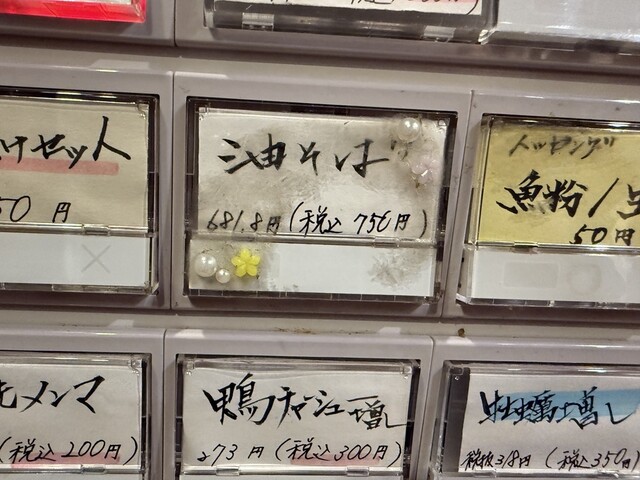 けセット
50円
油そば
681.8円(税込 750円)
トッピング
魚粉/
50円
メンマ
(税込200円)
鴨チャーシュー増し
273円(税込300円)
牡蠣増し
税抜318円(税込350円)